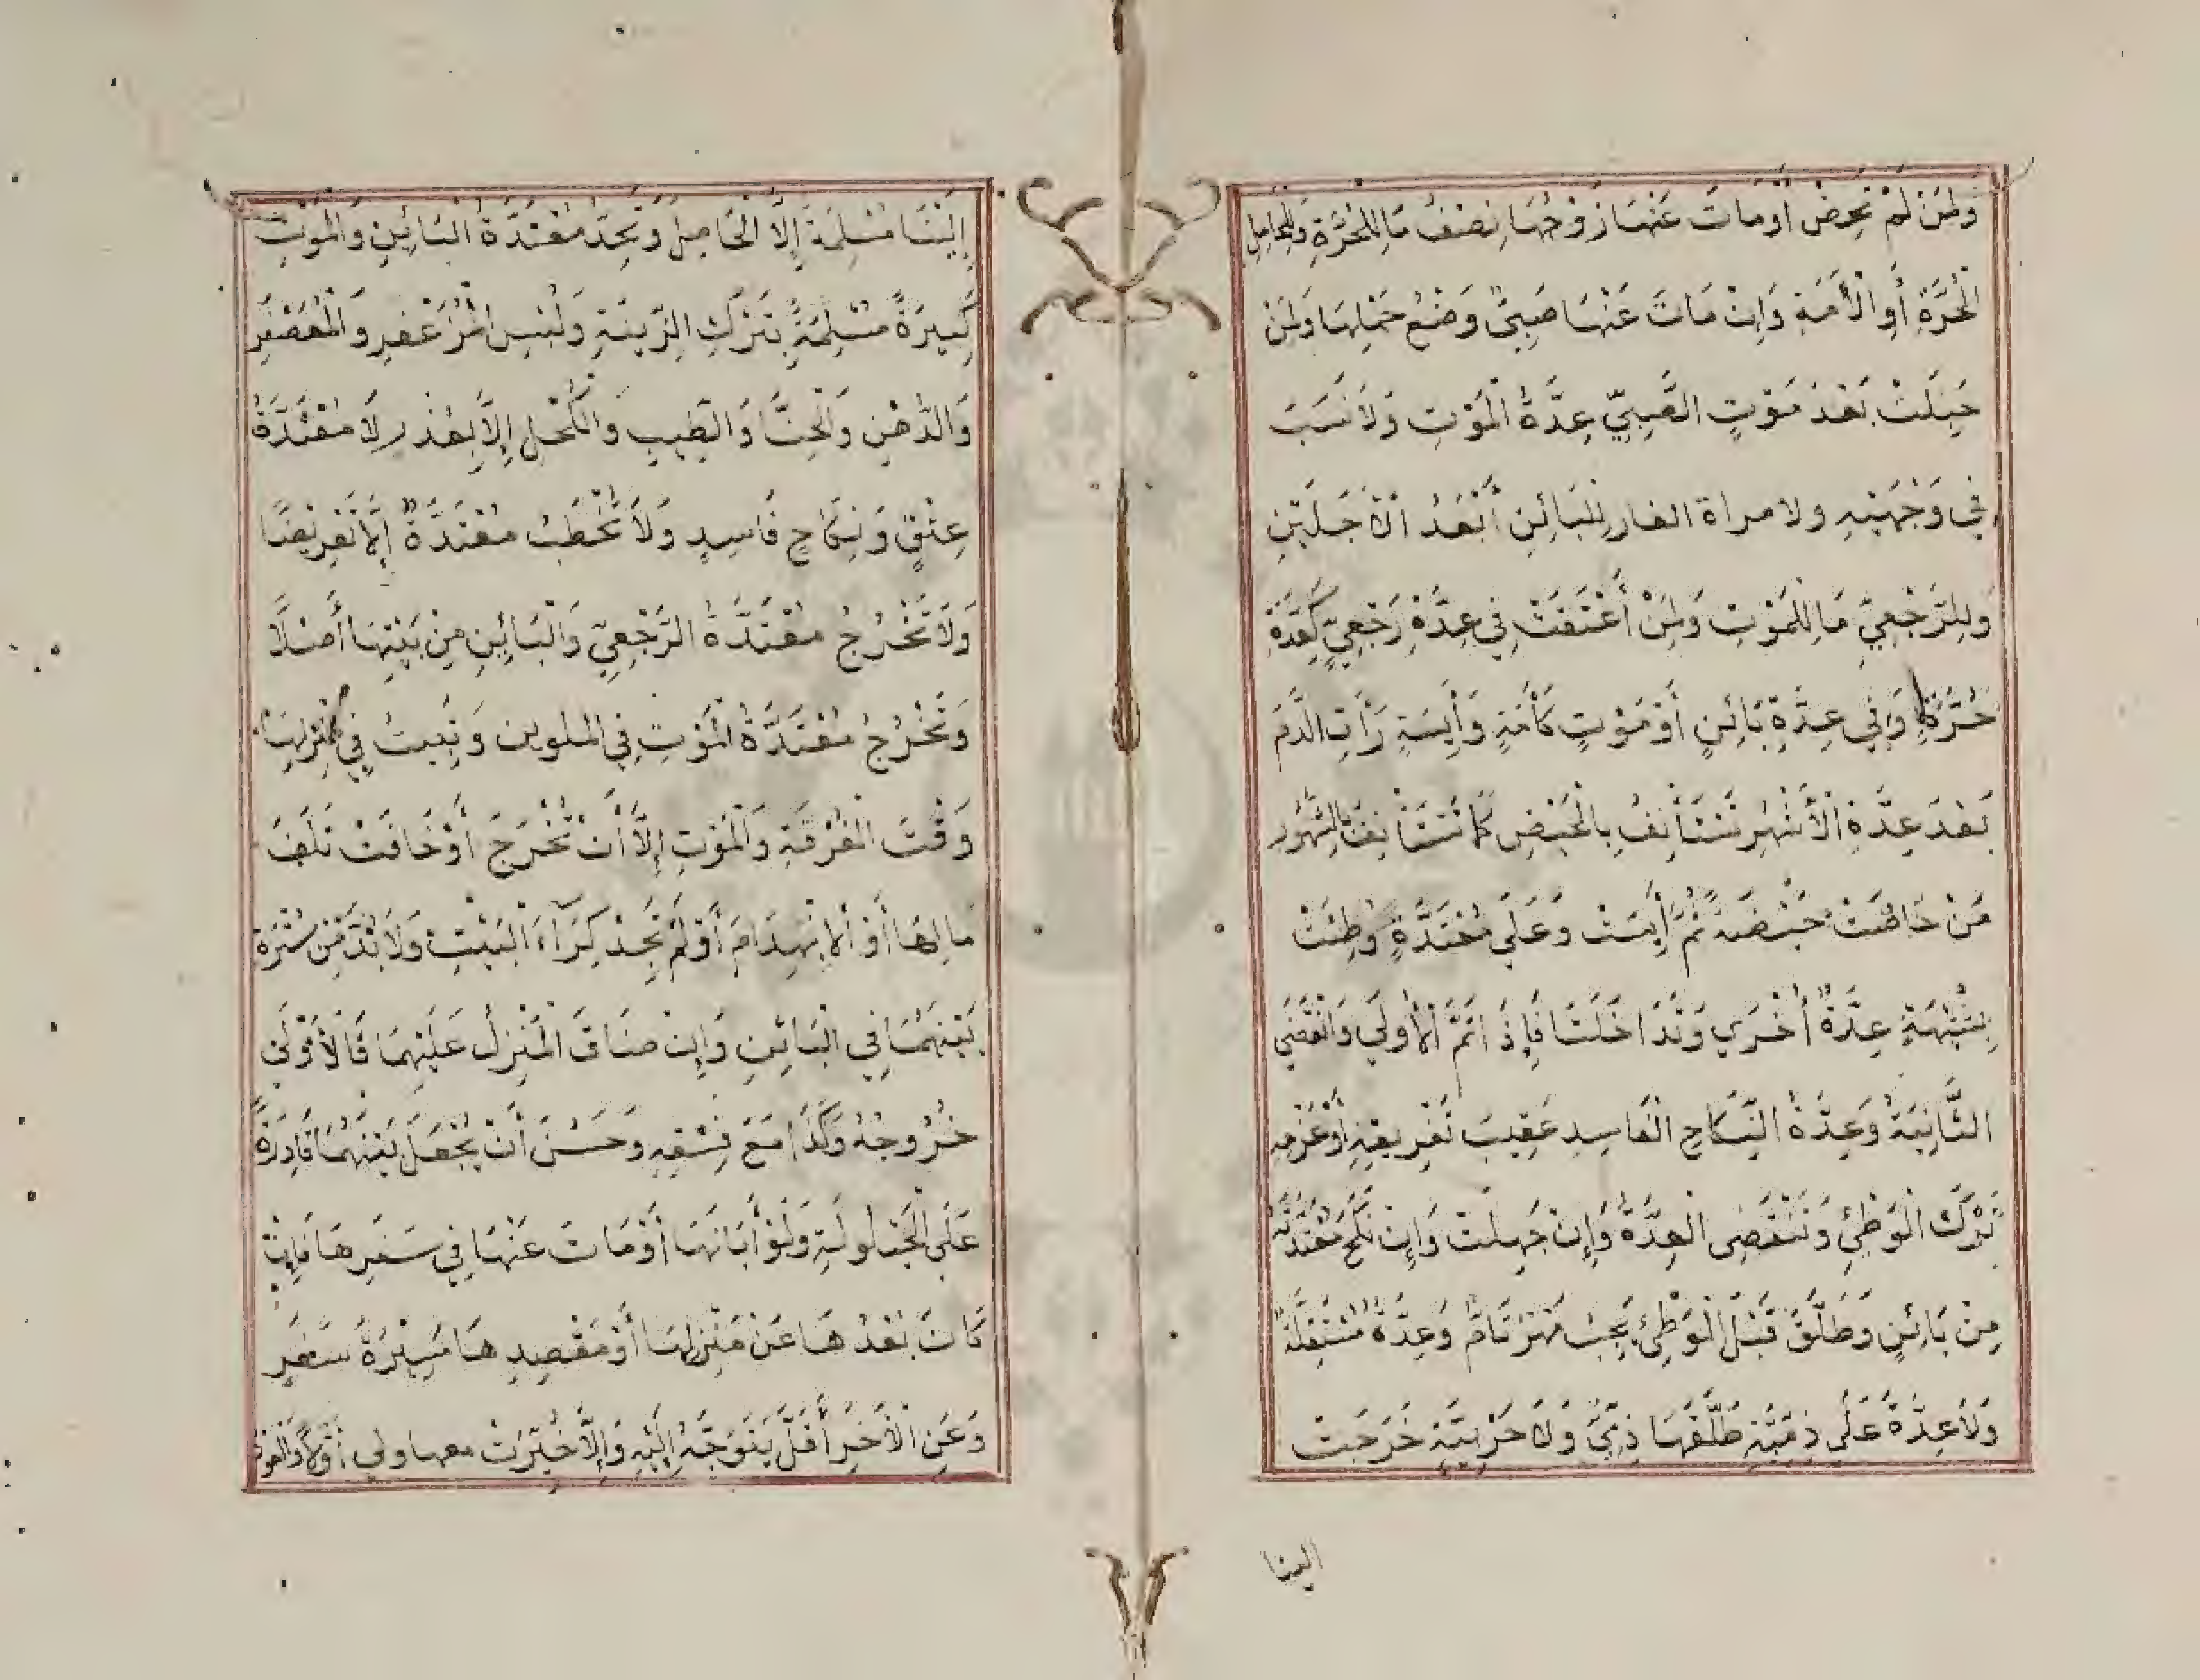 وَلِمَنْ لَمْ تَحِضْ أَوْمَاتَ عَنْهَا زَوْجُهَا نِصْفُ مَا لِلْحُرَّةِ وَلِلْحَامِلِ
الْحُرَّةِ أَوِ الْأَمَةِ وَإِنْ مَاتَ عَنْهَا صَبِيٌّ وَضْعُ حَمْلِهَا وَلِمَنْ
حَبِلَتْ بَعْدَ مَوْتِ الصَّبِيِّ عِدَّةُ الْمَوْتِ وَلَا نَسَبَ
فِي وَجْهَيْهِ ولامراة الفار لِلْبَائِنِ أَبْعَدُ الْأَجَلَيْنِ
وَلِلرَّجْعِيِّ مَا لِلْمَوْتِ وَلِمَنْ أُعْتِقَتْ فِي عِدَّةِ رَجْعِيٍّ كَعِدَّةِ
حُرَّةٍ وَفِي عِدَّةِ بَائِنٍ أَوْ مَوْتٍ كَأَمَةٍ وَأَيِسَةٍ رَأَتِ الدَّمَ
بَعْدَ عِدَّةِ الْأَشْهُرِ تَسْتَأْنِفُ بِالْحَيْضِ كَمَا تَسْتَأْنِفُ بِالشُّهُورِ
مَنْ حَاضَتْ حَيْضَةً ثُمَّ أَيِسَتْ وَعَلَى مُعْتَدَّةٍ وُطِئَتْ
بِشُبْهَةٍ عِدَّةٌ أُخْرَي وَتَدَاخَلَتَا فَإِذَا تَمَّ الْأُولَي وَانْقَضَي
الثَّانِيَةُ وَعِدَّةُ النِّكَاحِ الْفَاسِدِ عَقِيبَ تَفْرِيقِهِ أَوْ عَزْمِهِ
تَرْكَ الْوَطْئِ وَتَنْقَضِي الْعِدَّةُ وَإِنْ جَهِلَتْ وَإِنْ نَكَحَ مُعْتَدَّتَهُ
مِنْ بَائِنٍ وَطَلَّقَ قَبْلَ الْوَطْئِ يَجِبُ مَهْرٌ تَامٌّ وَعِدَّةٌ مُسْتَقِلَّةٌ
وَلَا عِدَّةَ عَلَى ذِمِّيَّةٍ طَلَّقَهَا ذِمِّيٌّ وَلَا حَرْبِيَّةٍ خَرَجَتْ
الينا
إِلَيْنَا مُسْلِمَةً إِلَّا الْحَامِلَ وَتَحِدُّ مُعْتَدَّةُ الْبَائِنِ وَالْمَوْتِ
كَبِيرَةً مُسْلِمَةً بِتَرْكِ الزِّينَةِ وَلُبْسِ الْمُزَعْفَرِ وَالْمُعَصْفَرِ
وَالدُّهْنِ وَالْحِنَّا وَالطِّيبِ وَالْكُحْلِ إِلَّا بِعُذْرٍ لَا مُعْتَدَّةُ
عِتْقٍ وَنِكَاحٍ فَاسِدٍ وَلَا تُخْطَبُ مُعْتَدَّةٌ إِلَّا تَعْرِيضًا
وَلَا تَخْرُجُ مُعْتَدَّةُ الرَّجْعِيِّ وَالْبَائِنِ مِنْ بَيْتِهَا أَصْلًا
وَتَخْرُجُ مُعْتَدَّةُ الْمَوْتِ فِي الملوين وَتَبِيتُ فِي مَنْزِلِهَا
وَقْتَ الْفُرْقَةِ وَالْمَوْتِ إِلَّا أَنْ تُخْرَجَ أَوْ خَافَتْ تَلَفَ
مَالِهَا أَوْ الْإِنْهِدَامَ أَوْ لَمْ تَجِدْ كِرَآءَ الْبَيْتِ وَلَا بُدَّ مِنْ سُتْرَةٍ
بَيْنَهُمَا فِي الْبَائِنِ وَإِنْ ضَاقَ الْمَنْزِلُ عَلَيْهِمَا فَالْأَوْلَي
خُرُوجُهُ وَكَذَا مَعَ فِسْقِهِ وَحَسُنَ أَنْ يُجْعَلَ بَيْنَهُمَا قَادِرَةٌ
عَلَى الْحَيْلُولَةِ وَلَوْ أَبَانَهَا أَوْ مَاتَ عَنْهَا فِي سَفَرِهَا فَإِنْ
كَانَ بُعْدُهَا عَنْ مَنْزِلِهَا أَوْ مَقْصِدِهَا مَسِيْرَةَ سَفَرٍ
وَعَنِ الْأَخَرِ أَقَلَّ يَتَوَجَّهُ إِلَيْهِ وَإِلَّا خُيِّرَتْ معها ولي أَوْ لَا وَالعود